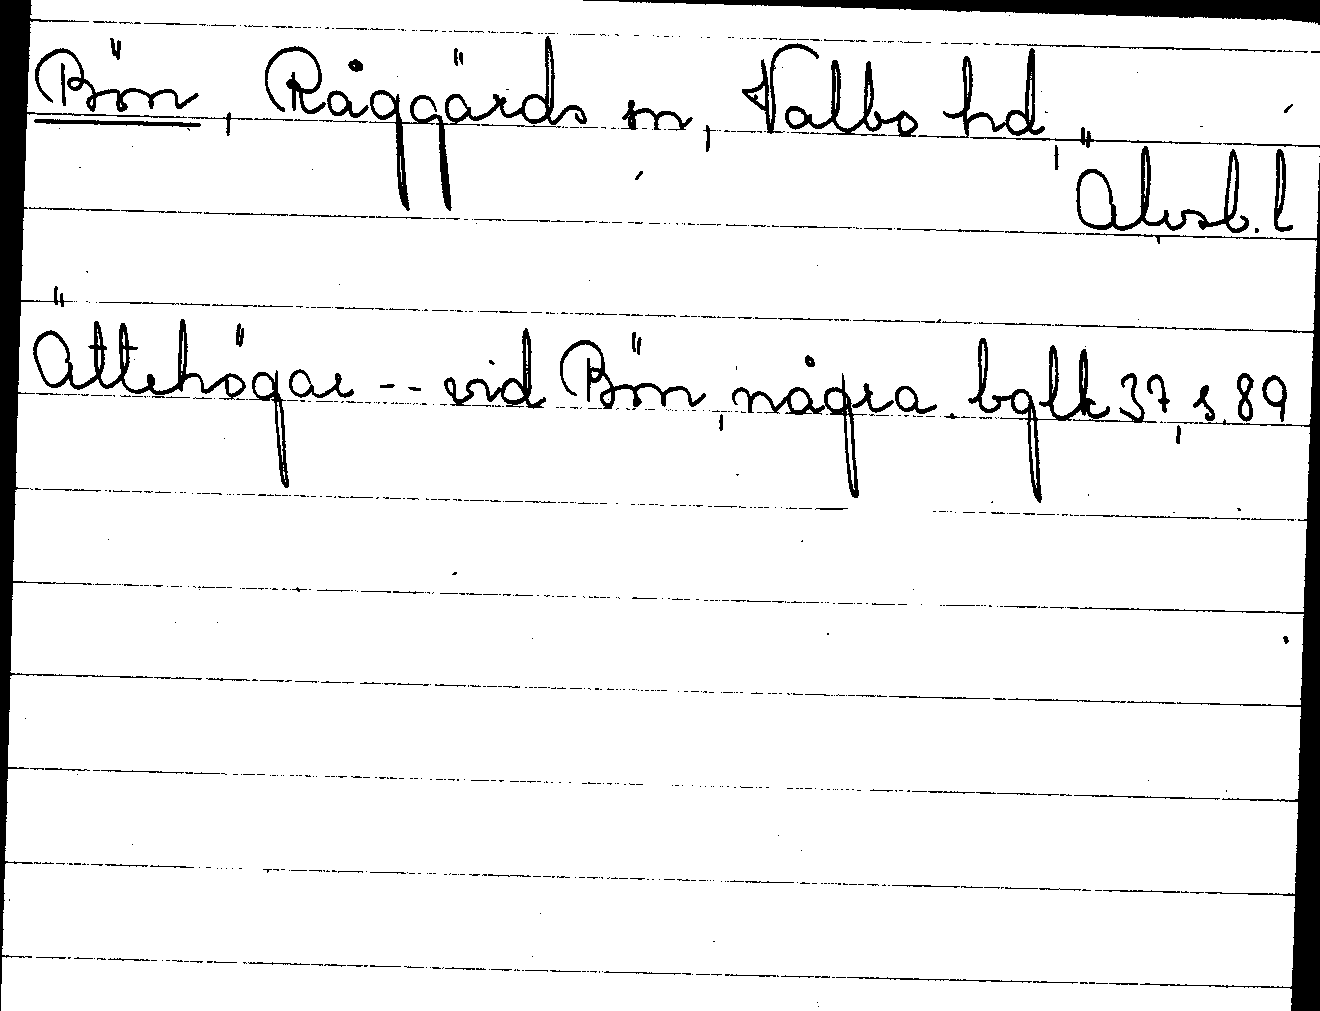 Bön, Råggärds sn, Valbo hd,
Älvsb. l
Ättehögar -- vid Bön, några. bglk 37, s. 89